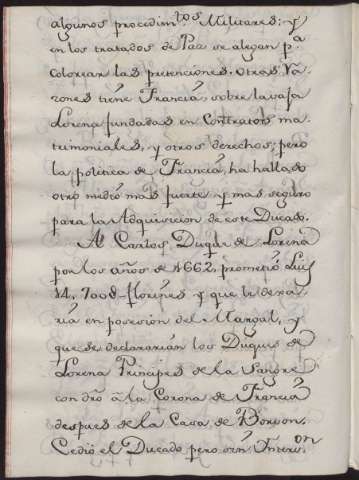 algunos procedim.tos Militares; y
en los tratados de Paz se alegan p.a
colorear las pretenciones. Otras Ra-
zones tiène Francia sobre la vaja
Lorena fundadas en Contratos ma-
trimoniales, y otros derechos; pero
la politica de Francia, ha hallado
otro mediò mas fuerte y mas seguro
para la Adquisicion de este Ducado.
Al Carlos Duque de Lorena
por los años de 1662, prometiò Luis
14, 7008 florines y que le dexa-
ria en posesion del Marsal, y
que se declararian los Duques de
Lorena Principes de la Sangre
con dro à la Corona de Francia
despues de la Casa de Borvon.
Cediò el Ducado pero